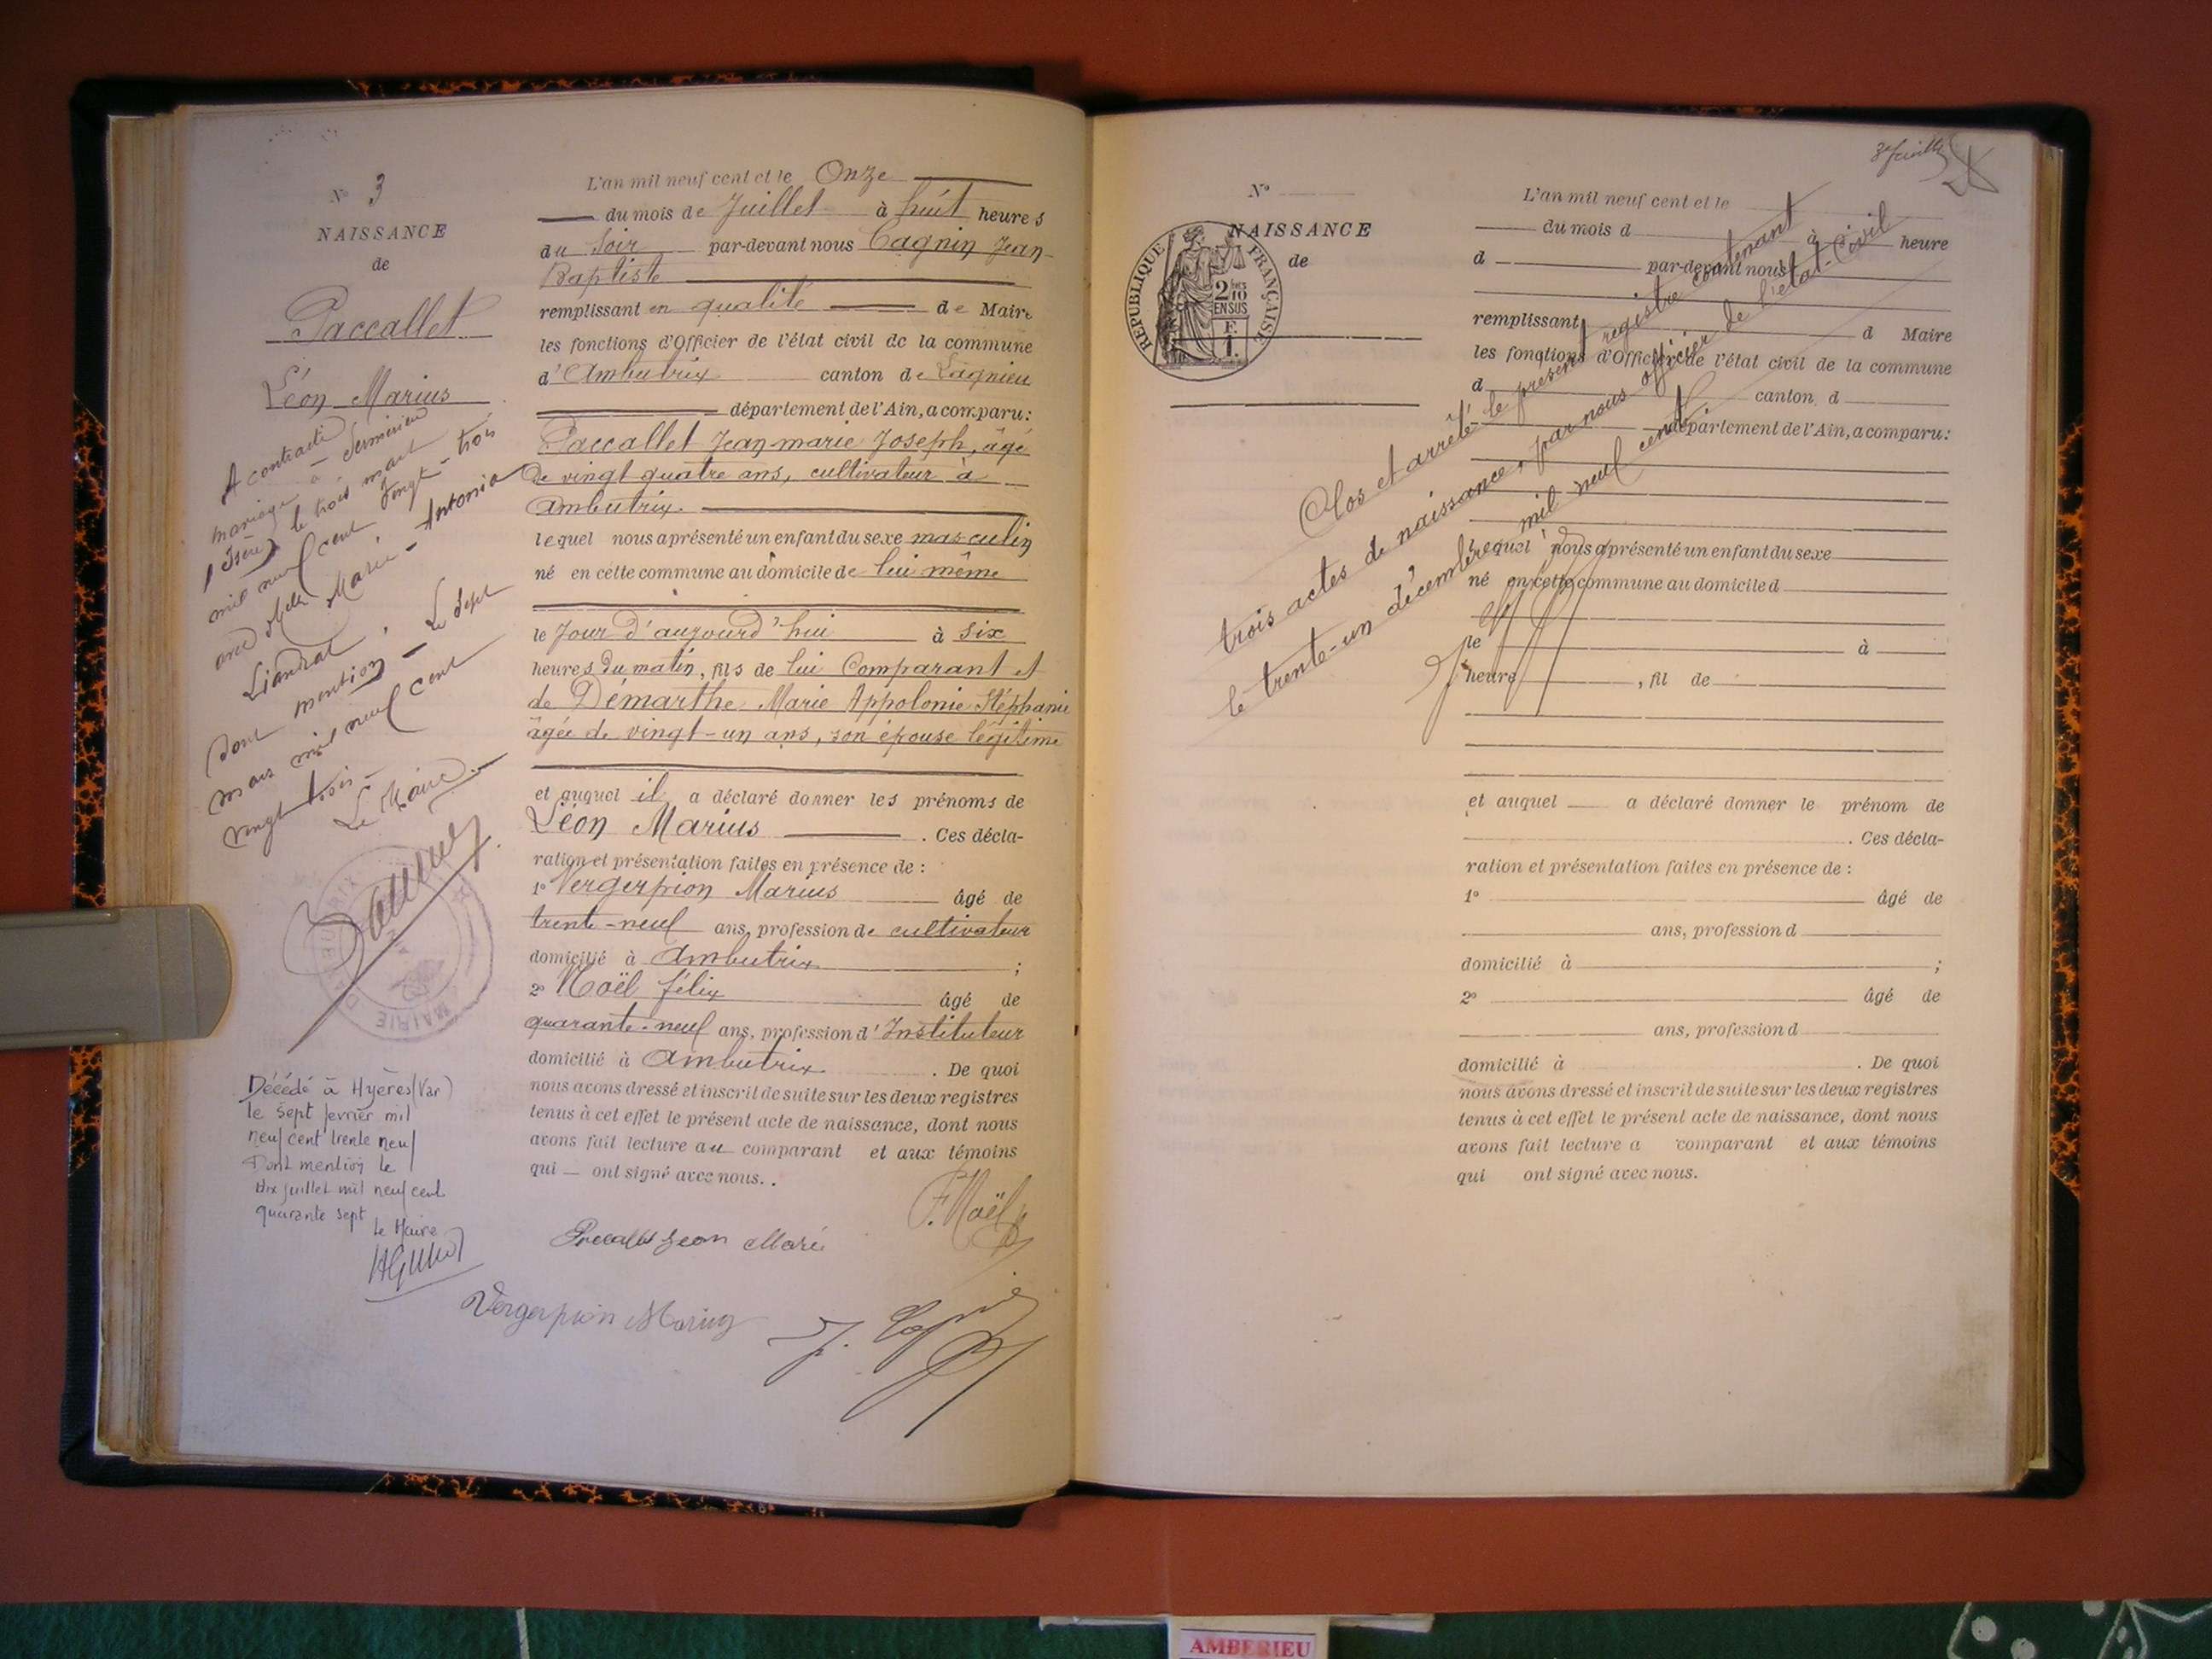 N° 3
NAISSANCE
de
Paccallet
Léon Marius
A contracté
mariage à Sermérieu
(Isère) le trois mars
mil neuf cent vingt-trois
avec Melle Marie-Antonia
Liandrat
Dont mention. Le Sept
mars mil neuf cent
vingt trois.
Le Maire
MAIRIE D'AMBUTRIX
AIN
Décédé à Hyères (Var)
le sept fevrier mil
neuf cent trente neuf
Dont mention le
dix juillet mil neuf cent
quarante sept
le Maire
L'an mil neuf cent et le Onze
du mois de Juillet à huit heures
du soir par-devant nous Cagnin Jean-
Baptiste
remplissant en qualité de Maire
les fonctions d'Officier de l'état civil de la commune
d'Ambutrix canton de Lagnieu
département de l'Ain, a comparu:
Paccallet Jean-marie Joseph, âgé
de vingt quatre ans, cultivateur à
Ambutrix.
lequel nous a présenté un enfant du sexe masculin
né en cette commune au domicile de lui même
le Jour d'aujourd'hui à six
heures du matin, fils de lui Comparant et
de Démarthe Marie Appolonie Stéphanie
âgée de vingt-un ans, son épouse légitime
et auquel il a déclaré donner les prénoms de
Léon Marius . Ces décla-
ration et présentation faites en présence de :
1° Vergerpion Marius âgé de
trente-neuf ans, profession de cultivateur
domicilié à Ambutrix ;
2° Noël félix âgé de
quarante-neuf ans, profession d'Instituteur
domicilié à Ambutrix . De quoi
nous avons dressé et inscrit de suite sur les deux registres
tenus à cet effet le présent acte de naissance, dont nous
avons fait lecture au comparant et aux témoins
qui — ont signé avec nous.
F. Noël
Paccallet Jean Marie
Vergerpion Marius
3e feuille
N°
NAISSANCE
de
RÉPUBLIQUE FRANÇAISE
2/10
EN SUS
F.
1.
L'an mil neuf cent et le
du mois d à heure
d par-devant nous
remplissant d Maire
les fonctions d'Officier de l'état civil de la commune
d canton d
département de l'Ain, a comparu:
Clos et arrêté le présent registre contenant
trois actes de naissance, par nous officier de l'état-Civil
le trente-un décembre mil neuf cent.
lequel nous a présenté un enfant du sexe
né en cette commune au domicile d
le à
heure , fil de
et auquel a déclaré donner le prénom de
. Ces décla-
ration et présentation faites en présence de :
1° âgé de
ans, profession d
domicilié à ;
2° âgé de
ans, profession d
domicilié à . De quoi
nous avons dressé et inscrit de suite sur les deux registres
tenus à cet effet le présent acte de naissance, dont nous
avons fait lecture a comparant et aux témoins
qui ont signé avec nous.
AMBERIEU